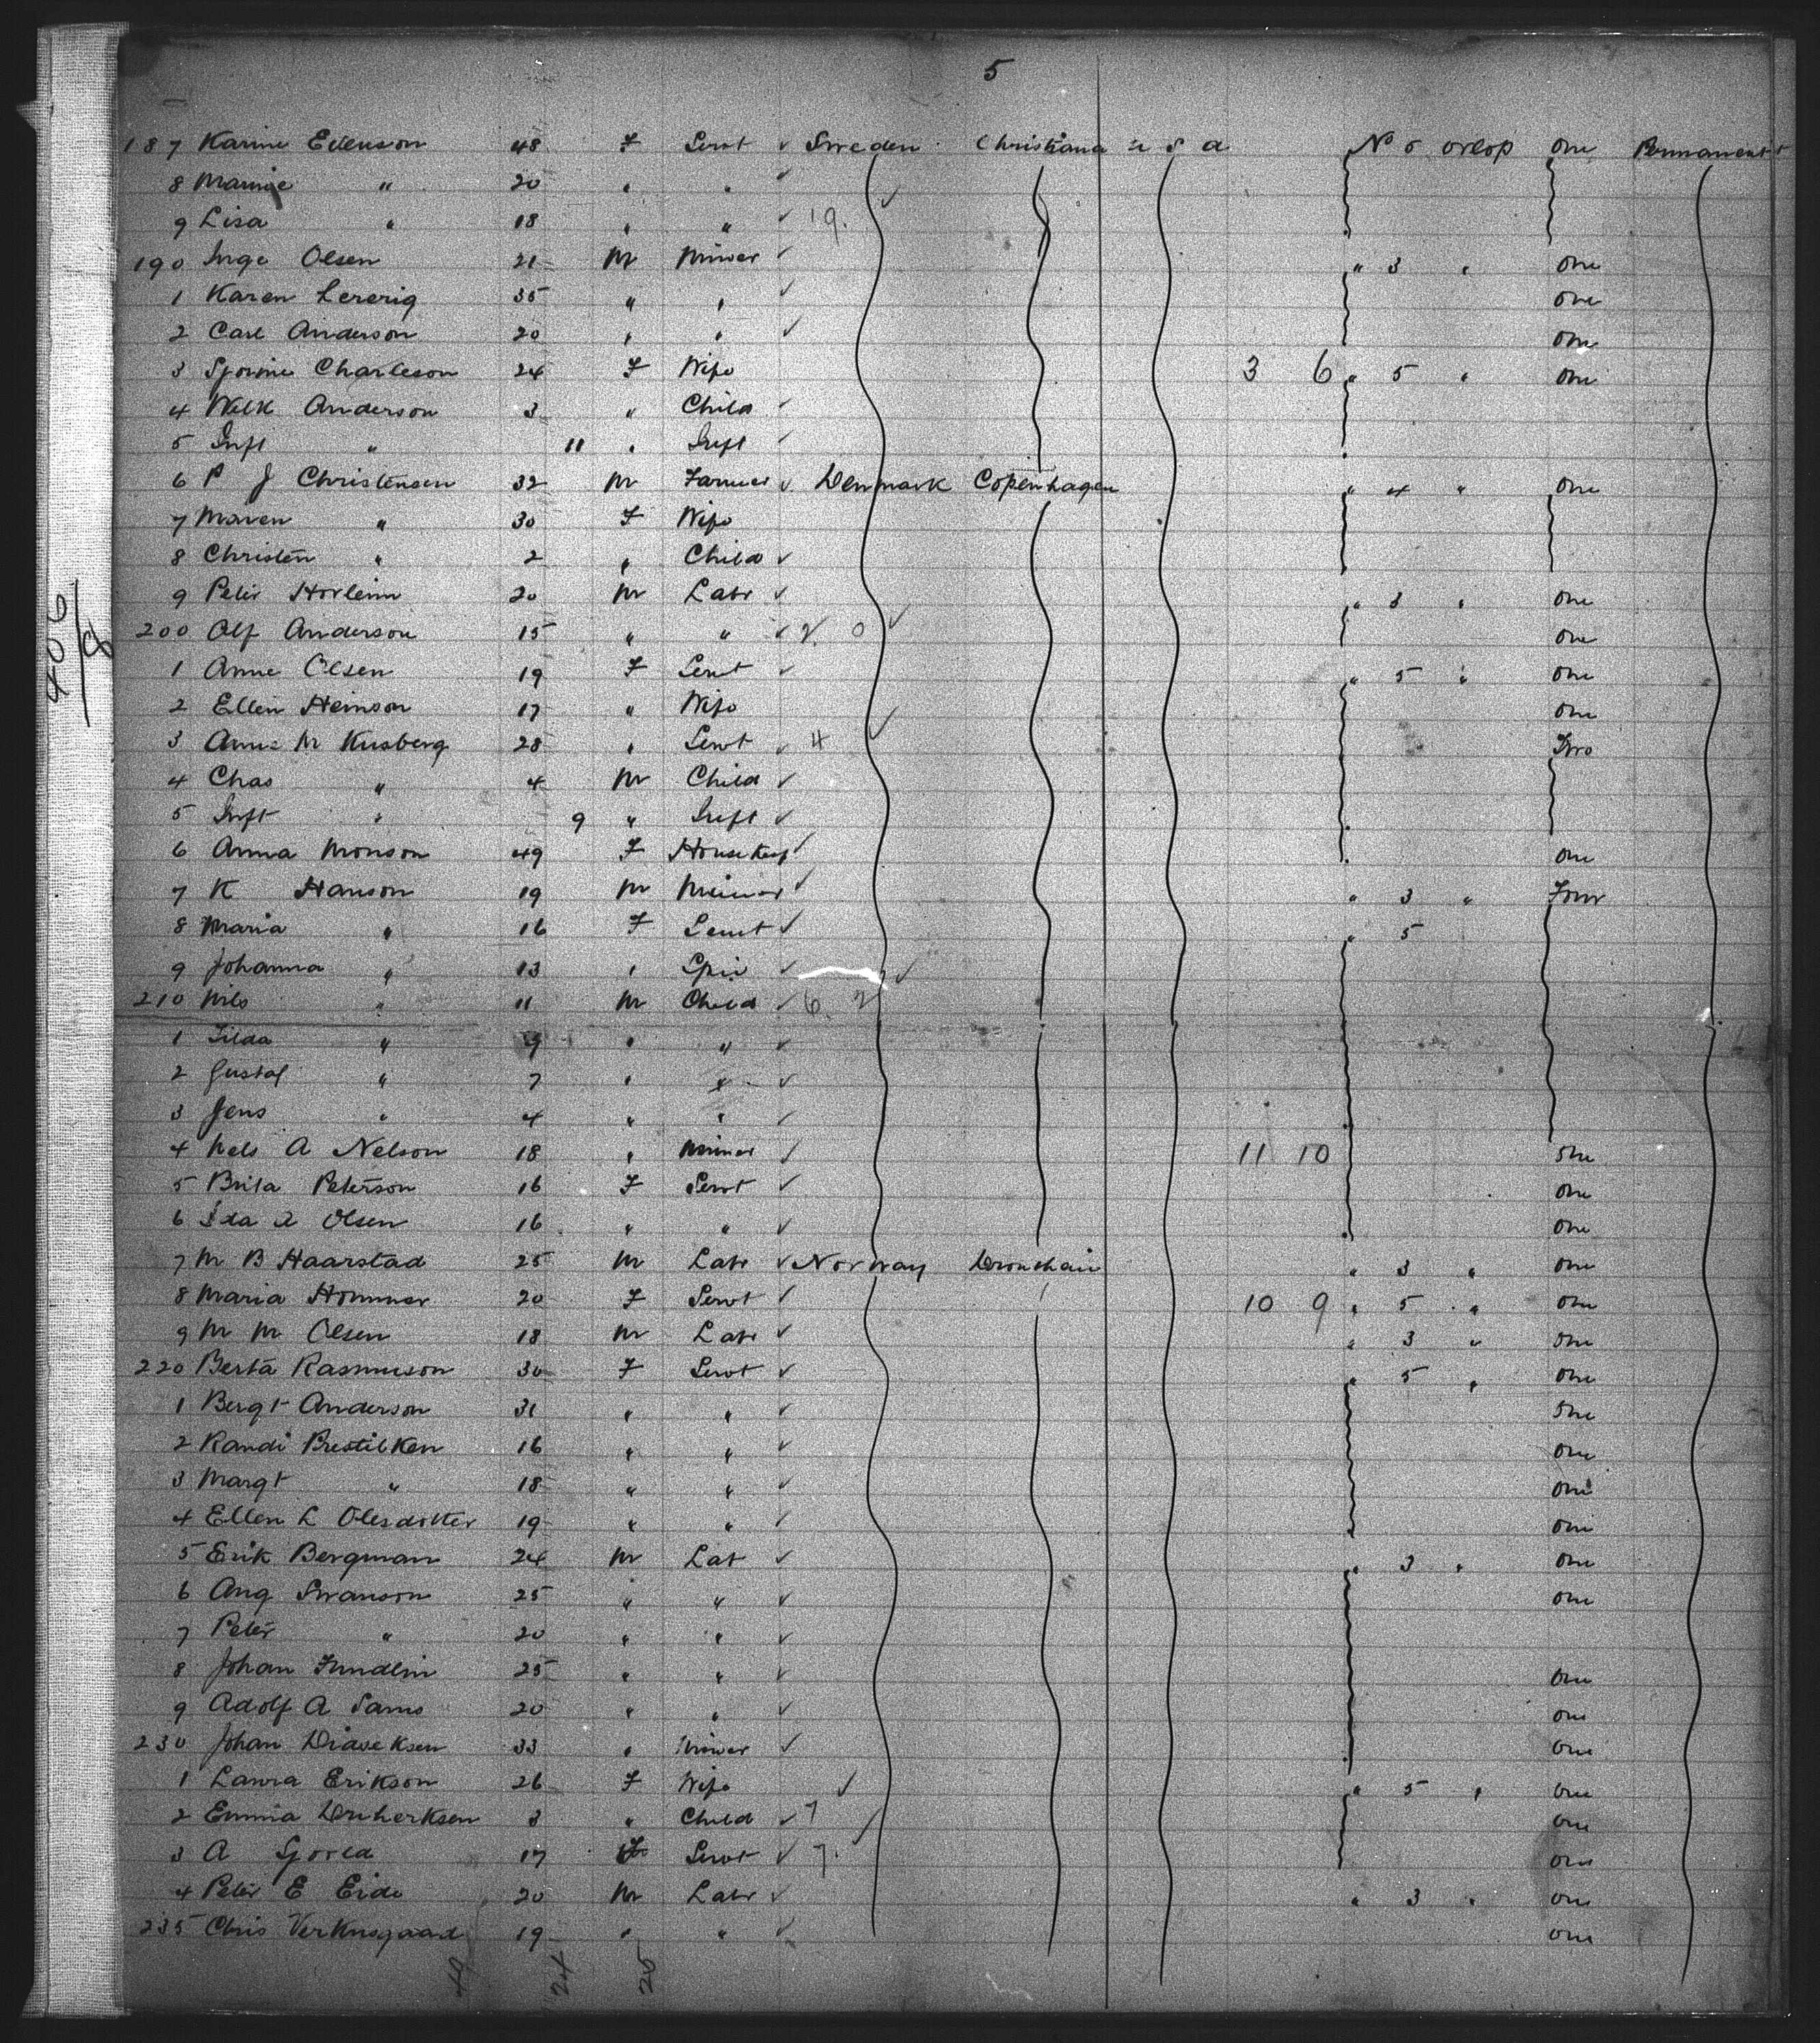 5
187 Karine Ellenson 48 F Servt ✓ Sweden Christiana U S A No 5 orlop One Permanent
8 Mamie " 20 " " ✓
9 Lisa " 18 " " ✓ 19.
190 Inge Olsen 21 M Miner ✓ " 3 " One
1 Karen 35 " " ✓ One
2 Carl Anderson 20 " " ✓ One
3 Charleson 24 F Wife 3 6 " 5 " One
4 Anderson 3 " Child ✓
5 Inft " 11 " Inft ✓
6 P J Christensen 32 M Farmer ✓ Denmark Copenhagen " 4 " One
7 Maren " 30 F Wife
8 Christen " 2 " Child ✓
9 Peter 20 M Labr ✓ " 3 " One
200 Olf Anderson 15 " " ✓ 2 0 ✓ One
1 Anne Olsen 19 F Servt ✓ " 5 " One
2 Ellen Heinson 17 " Wife One
3 Anne M Kusberg 28 " Servt ✓ 4 ✓ Two
4 Chas " 4 M Child ✓
5 Inft " 9 " Inft ✓
6 Anna Monson 49 F Housekeep ✓ One
7 K Hanson 19 M Miner ✓ " 3 " Four
8 Maria " 16 F Servt ✓ " 5
9 Johanna " 13 " Spin ✓ ✓
210 Nils " 11 M Child ✓ 6. 2
1 Tilda " 9 " " ✓
2 Gustaf " 7 " " ✓
3 Jens " 4 " " ✓
4 Nels A Nelson 18 " Miner ✓ 11 10 One
5 Brita Peterson 16 F Servt ✓ One
6 Ida A Olsen 16 " " ✓ One
7 M B Haarstad 25 M Labr ✓ Norway Drontheim " 3 " One
8 Maria Hommer 20 F Servt ✓ 10 9 " 5 " One
9 M M Olsen 18 M Labr ✓ " 3 " One
220 Berta Rasmuson 30 F Servt ✓ " 5 " One
1 Bergt Anderson 31 " " ✓ One
2 Randi Prestilken 16 " " ✓ One
3 Margt " 18 " " ✓ One
4 Ellen L Olesdotter 19 " " ✓ One
5 Erik Bergman 24 M Lab ✓ " 3 " One
6 Aug Swanson 25 " " ✓ One
7 Peter " 20 " " ✓
8 Johan Fundlin 25 " " ✓ One
9 Adolf A Sams 20 " " ✓ One
230 Johan 33 " Miner ✓ One
1 Laura Erikson 26 F Wife ✓ " 5 " One
2 Emma 3 " Child ✓ 7 One
3 A 17 F Servt ✓ 7. ✓ One
4 Peter E Eide 20 M Labr ✓ " 3 " One
235 Chris 19 " " ✓ One
49 24 25
406/8